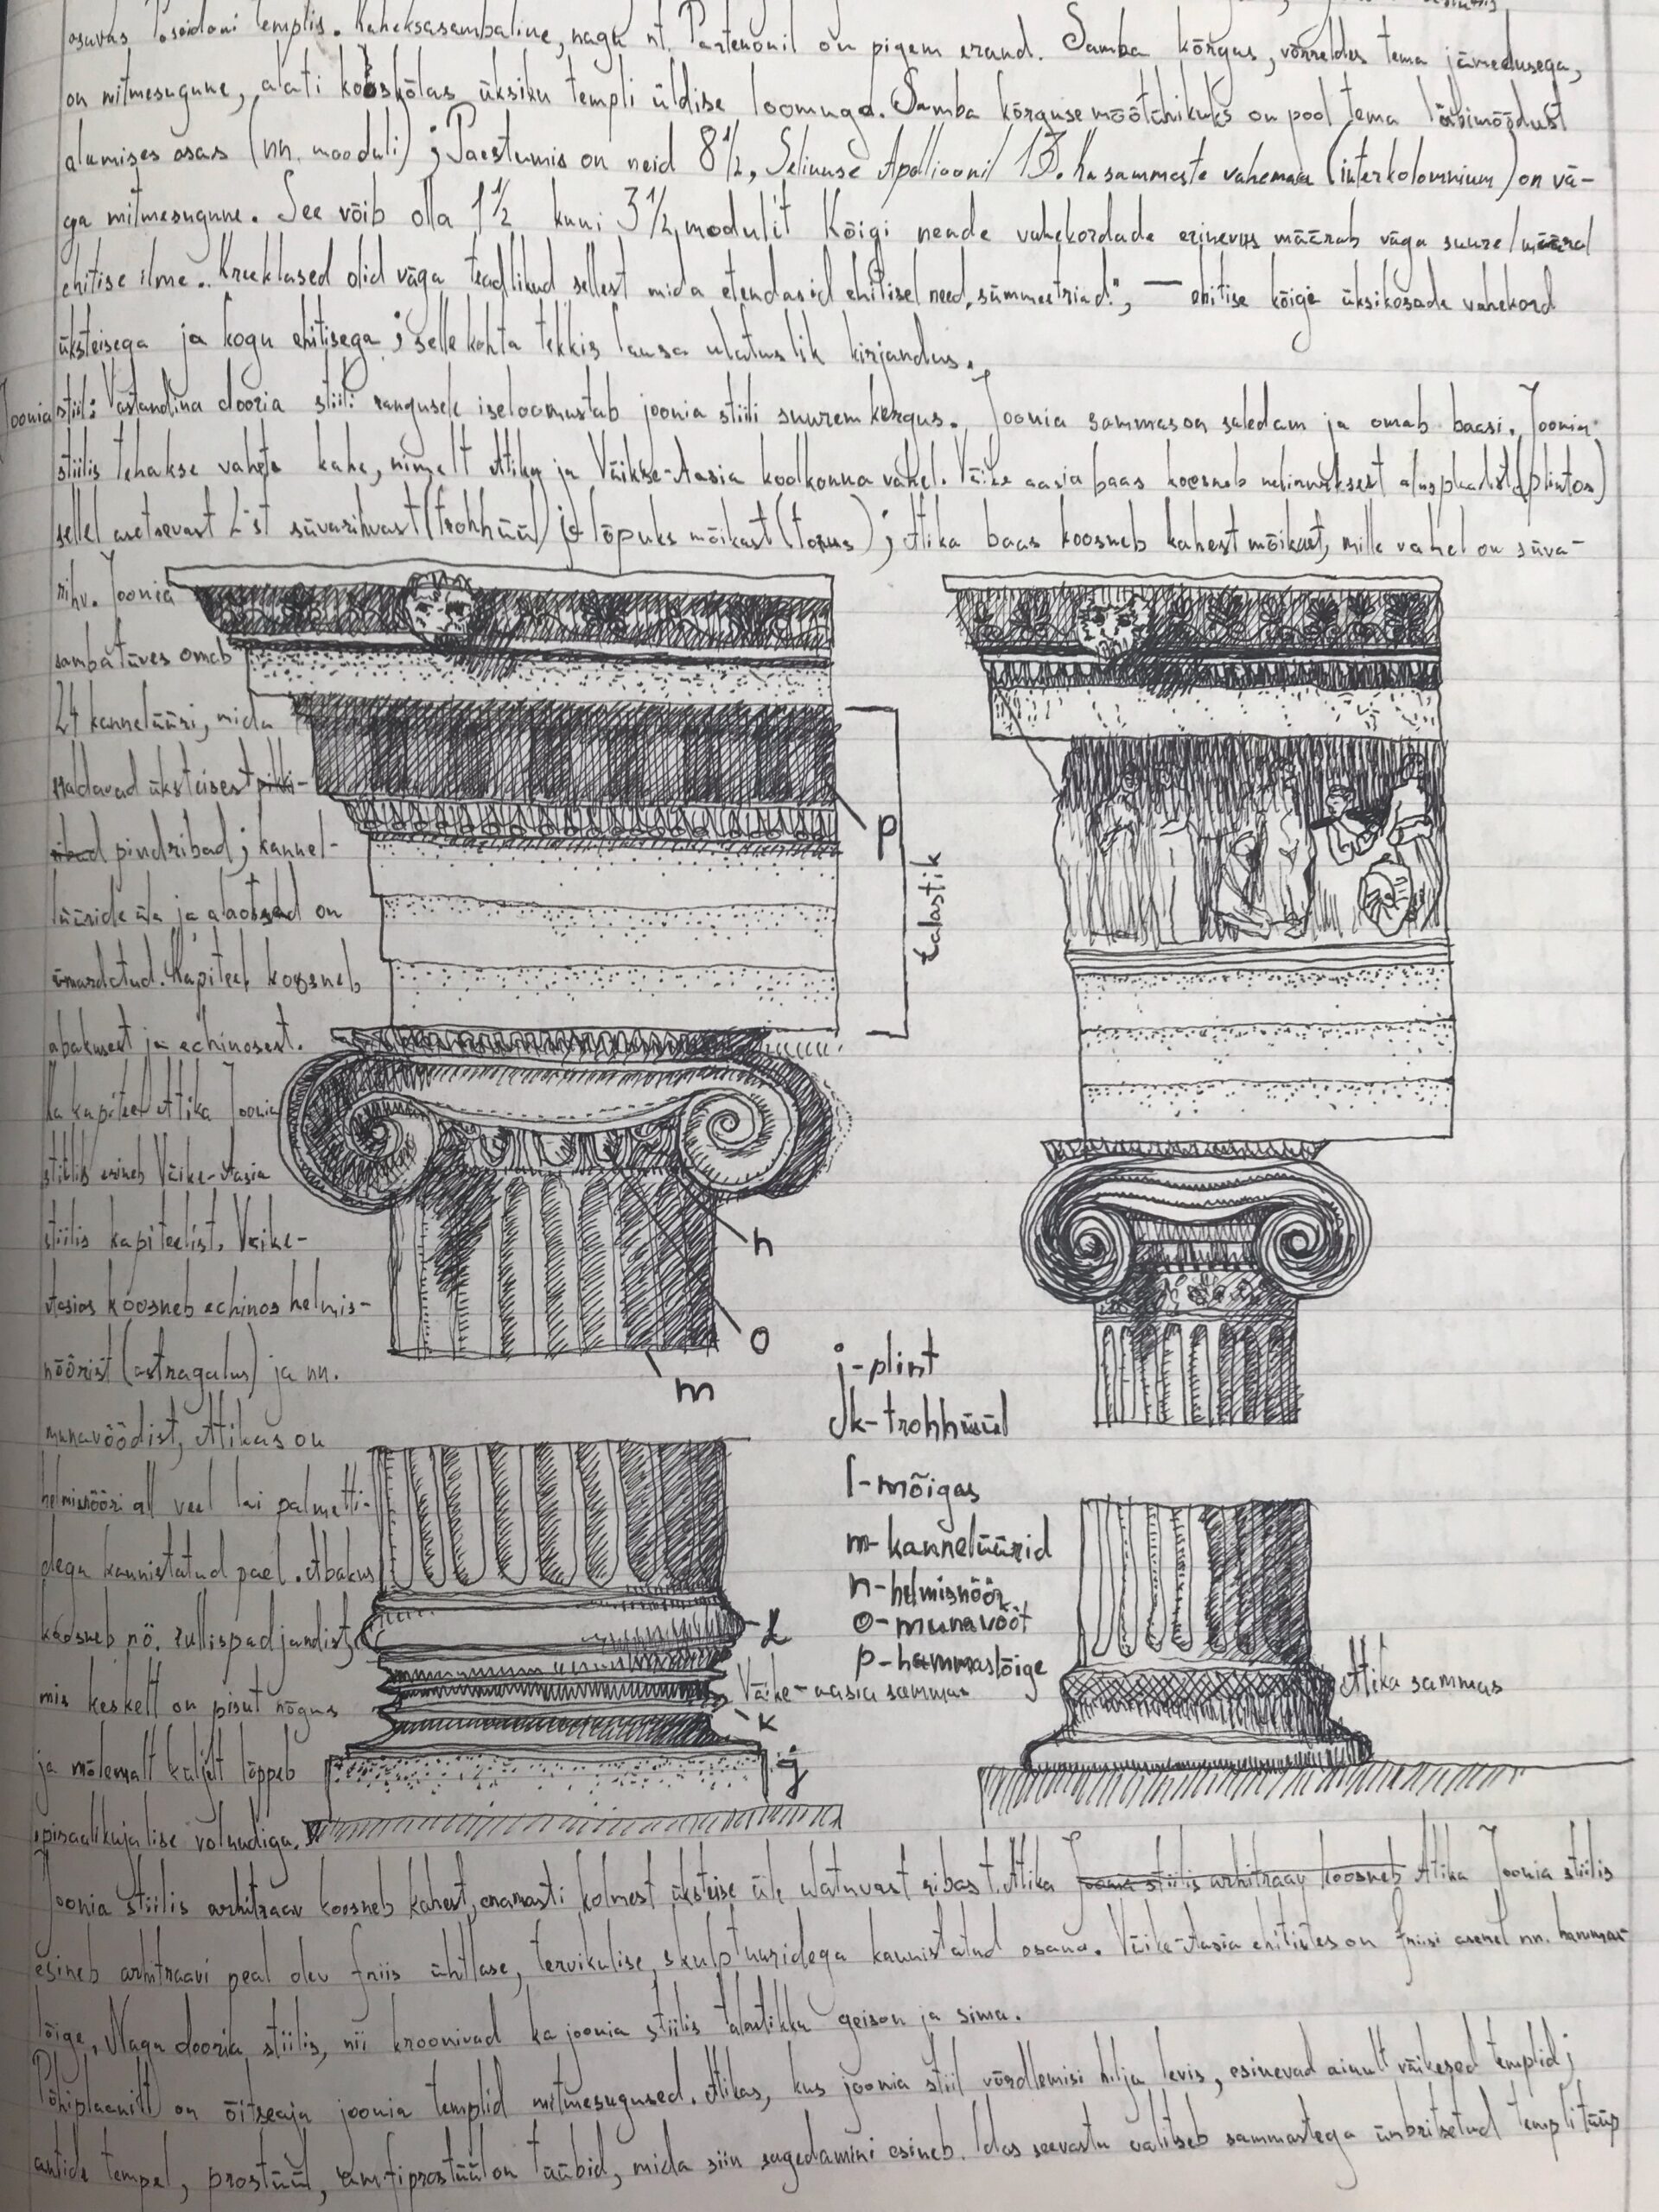 asuvas Poseidoni templis. Kaheksasambaline, nagu nt. Partenonil on pigem erand. Samba kõrgus, võrreldes tema jämedusega,
on mitmesugune, alati kooskõlas üksiku templi üldise loomuga. Samba kõrguse mõõtühikuks on pool tema läbimõõdust
alumises osas (nn. mooduli); Paestumis on neid 8 1/2, Selinuse Apollioonil 13. Ka sammaste vahemaa (interkolomnium) on vä-
ga mitmesugune. See võib olla 1 1/2 kuni 3 1/2 modulit Kõigi nende vahekordade erinevus määrab väga suurel määral
ehitise ilme. Kreeklased olid väga teadlikud sellest mida etendasid ehitisel need „sümmeetriad", — ehitise kõige üksikosade vahekord
üksteisega ja kogu ehitisega; selle kohta tekkis lausa ulatuslik kirjandus.
Joonia stiil: Vastandina dooria stiili rangusele iseloomustab joonia stiili suurem kergus. Joonia sammas on saledam ja omab baasi. Joonia
stiilis tehakse vahet kahe, nimelt Atika ja Väikse-Aasia koolkonna vahel. Väike aasia baas koosneb nelinurksest alusplaadist (plintos)
sellel asetsevast 2-st süvarihvast (trohhüül) ja lõpuks mõikast (torus); Atika baas koosneb kahest mõikast, mille vahel on süva-
rihv. Joonia
samba tüves omab
24 kannelüüri, mida
eraldavad üksteisest pikki-
ribad pindribad; kannel-
lüüride üla ja alaotsad on
ümardatud. Kapiteel koosneb
abakusest ja echinosest.
Ka kapiteel Atika Joonia
stiilis erineb Väike-Aasia
stiilis kapiteelist. Väike-
Aasias koosneb echinos helmis-
nöörist (astragalus) ja nn.
munavöödist, Atikas on
helmisnööri all veel lai palmetti-
dega kaunistatud pael. Abakus
koosneb nö. rullispadjandist,
mis keskelt on pisut nõgus
ja mõlemalt küljelt lõppeb
spiraalikujalise voluudiga.
p
talastik
n
o
m
j-plint
k-trohhüül
l-mõigas
m-kannelüürid
n-helmisnöör
o-munavööt
p-hammaslõige
l
Väike-aasia sammas
k
j
Atika sammas
Joonia stiilis arhitraav koosneb kahest, enamasti kolmest üksteise üle ulatuvast ribast. Atika Joonia stiilis arhitraav koosneb Atika Joonia stiilis
esineb arhitraavi peal olev friis ühtlase, tervikulise, skulptuuridega kaunistatud osana. Väike-Aasia ehitistes on friisi asemel nn. hammas-
lõige. Nagu dooria stiilis, nii kroonivad ka joonia stiilis talastikku geison ja sima.
Põhiplaanilt on õitseaja joonia templid mitmesugused. Atikas, kus joonia stiil võrdlemisi hilja levis, esinevad ainult väikesed templid;
antide tempel, prostüül, amfiprostüül on tüübid, mida siin sagedamini esineb. Idas seevastu valitseb sammastega ümbritsetud templitüüp